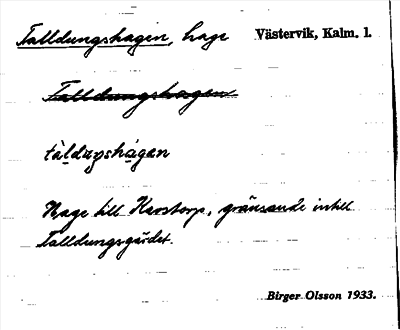 Talldungshagen, hage Västervik, Kalm. l.
Talldungshagen
tàlduŋshàgan
Hage till Karstorp, gränsande intill
Talldungsgärdet.
Birger Olsson 1933.